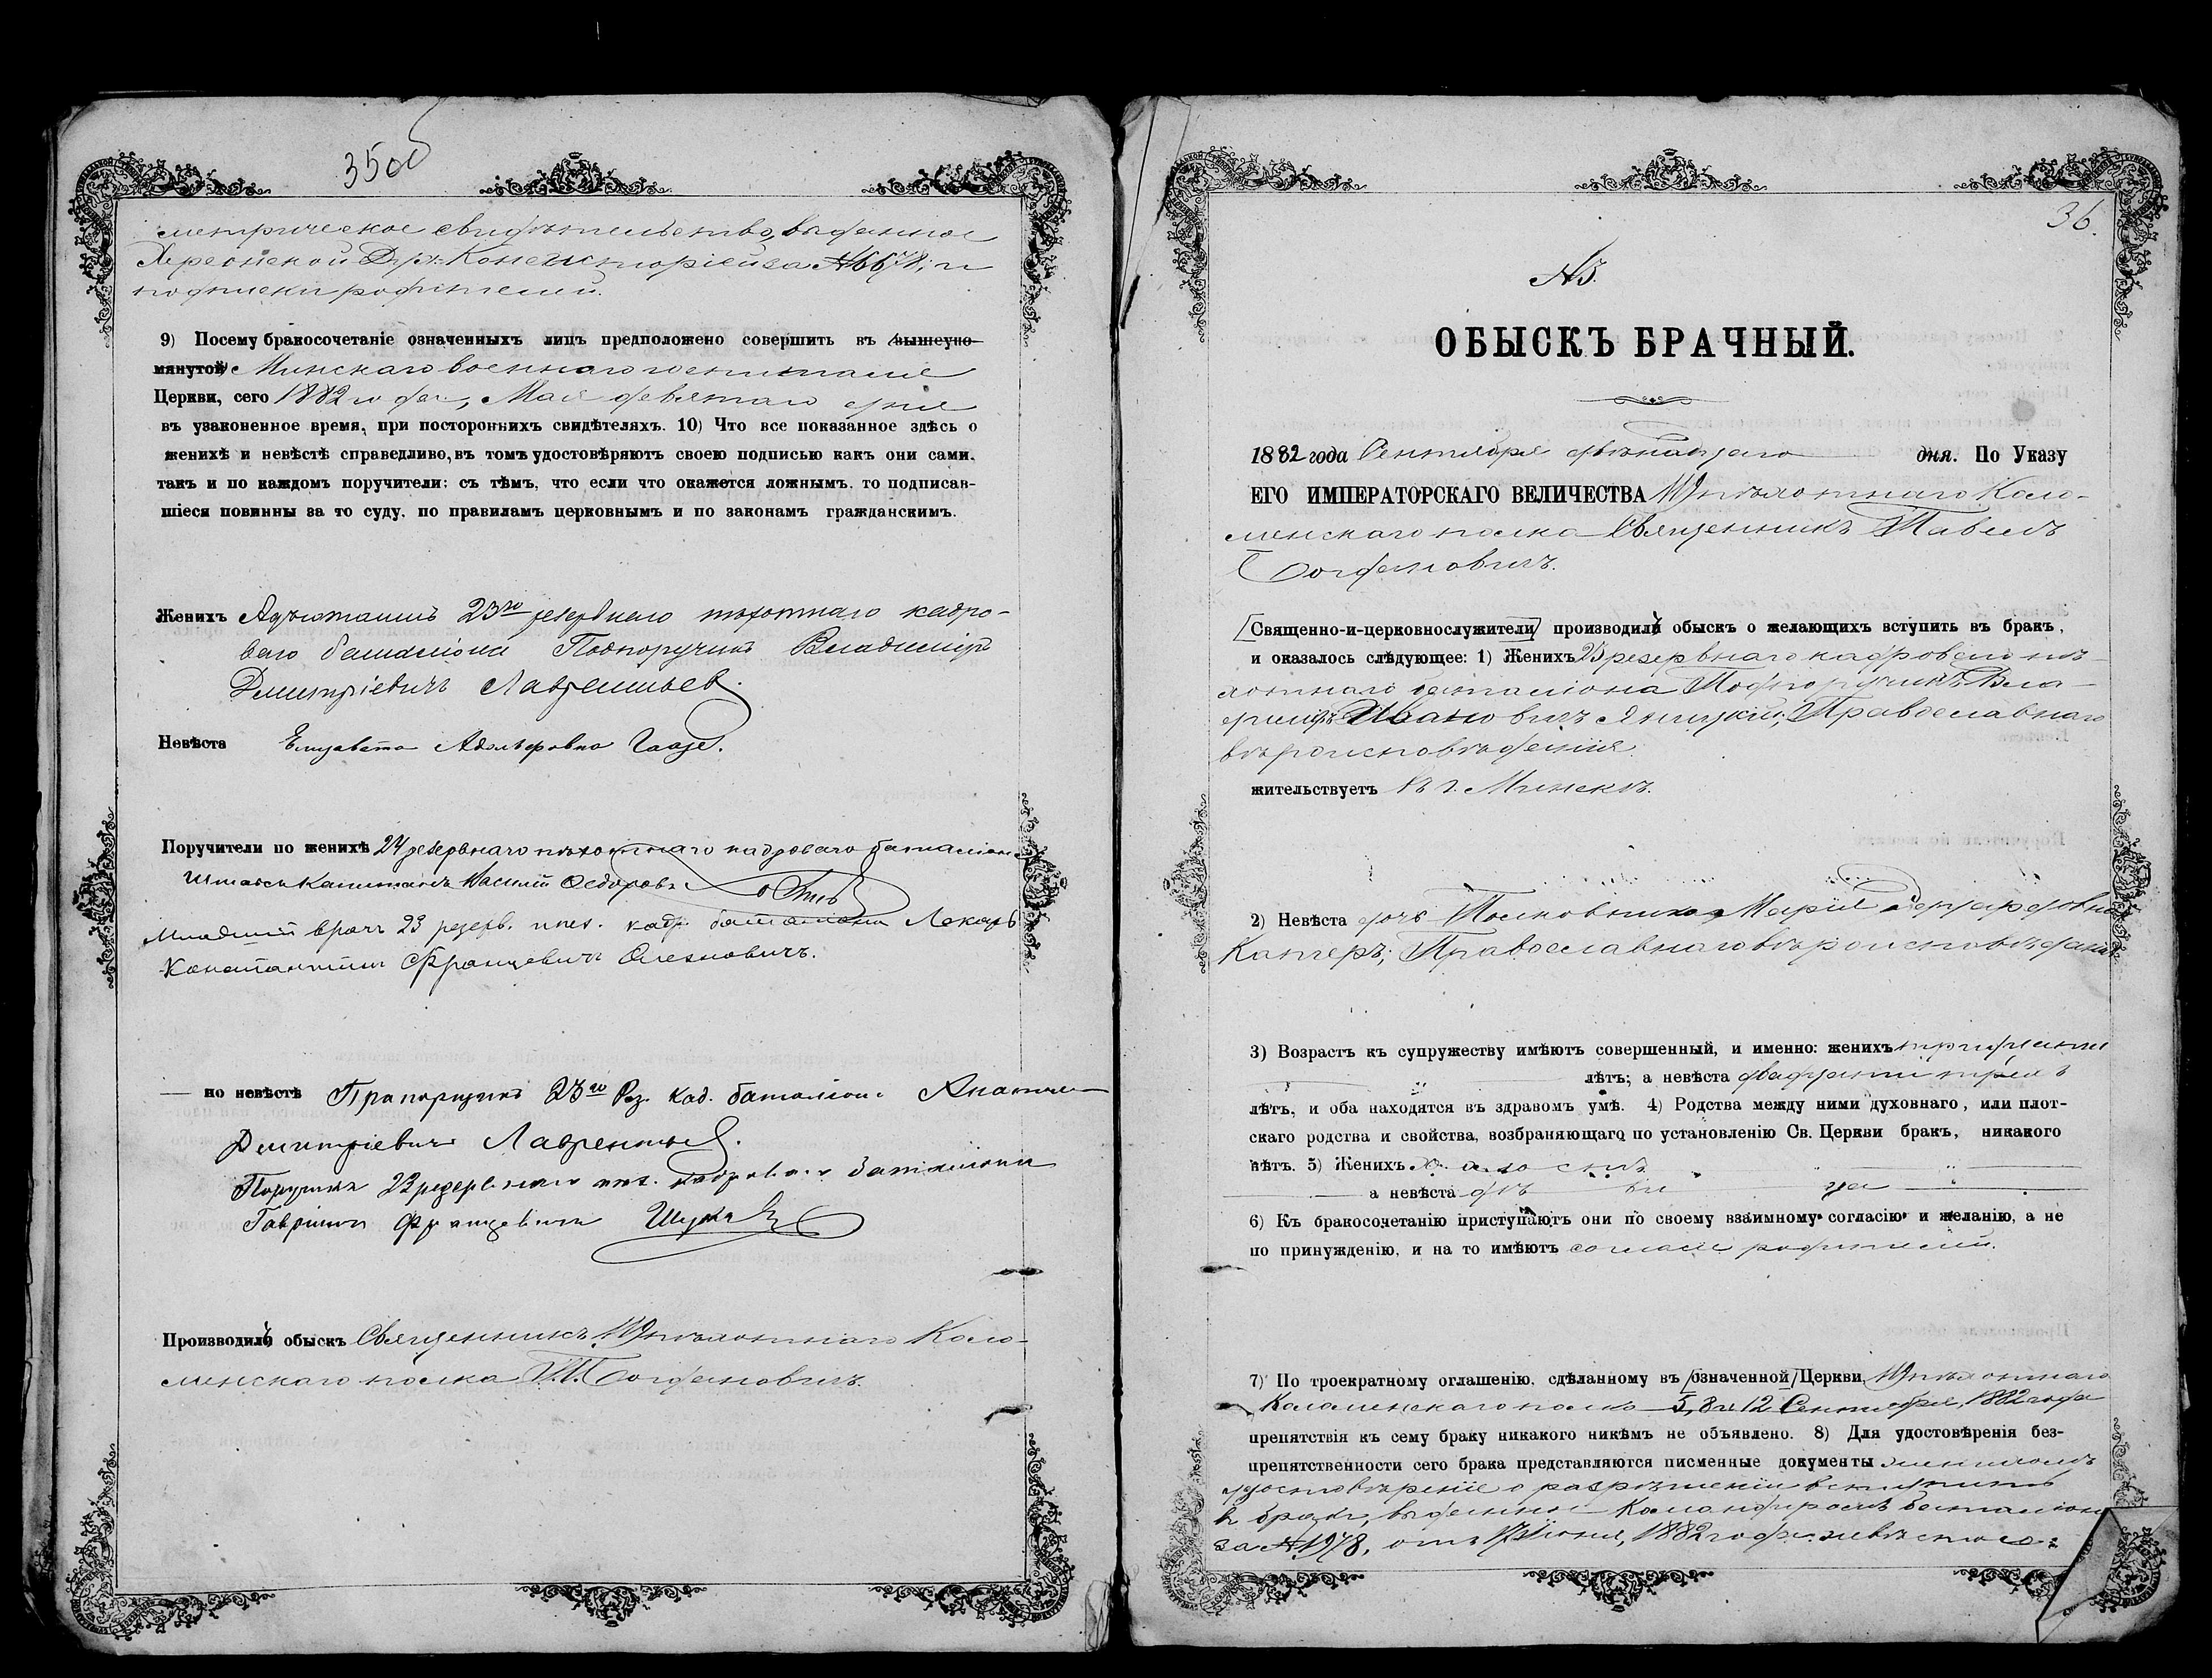 35об
метрическое свидѣтельство, выданное
Херсонской Дух. Консисторіей за №6678, и
подписки родителей.
9) Посему бракосочетаніе означенныхъ лицъ предположено совершить въ вышеупо-
мянутой Минскаго военнаго госпиталя
Церкви, сего 1882 года, Мая девятаго дня
въ узаконенное время, при постороннихъ свидѣтеляхъ. 10) Что все показанное здѣсь о
женихѣ и невѣстѣ справедливо, въ томъ удостовѣряютъ своею подписью какъ они сами,
такъ и по каждомъ поручители: съ тѣмъ, что если что окажется ложнымъ, то подписав-
шіеся повинны за то суду, по правиламъ церковнымъ и по законамъ гражданскимъ.
Женихъ Адъютантъ 23го резервнаго пѣхотнаго кадро-
ваго баталіона Подпоручикъ Владиміръ
Дмитріевичъ Лаврентьев.
Невѣста Елизавета Адольфовна Гаазе.
Поручители по женихѣ 24 резервнаго пѣхотнаго кадроваго баталіона
Штабсъ Капитанъ Василій Федоровъ
Младшій врачъ 23 резерв. пѣх. кадр. баталіона Лекарь
Константинъ Францевичъ
по невѣстѣ Прапорщикъ 23го Рез. Кад. баталіона
Дмитріевичъ Лаврентьев.
Поручикъ 23 резервнаго пѣх. кадроваго баталіона
Гавріилъ Францевичъ
Производилъ обыскъ Священникъ 119 пѣхотнаго Коло-
менскаго полка П. Богдановичъ.
36.
№3.
ОБЫСКЪ БРАЧНЫЙ.
1882 года Сентября двѣнадцатаго дня. По Указу
ЕГО ИМПЕРАТОРСКАГО ВЕЛИЧЕСТВА 119 пѣхотнаго Коло-
менскаго полка Священникъ Павелъ
Богдановичъ.
[Священно-и-церковнослужители] производилъ обыскъ о желающихъ вступить въ бракъ,
и оказалось слѣдующее: 1) Женихъ 23 резервнаго кадроваго пѣ-
хотнаго баталіона Подпоручикъ Вла-
диміръ Ивановичъ Яницкій; Православнаго
вѣроисповѣданія.
жительствуетъ въ г. Минскѣ.
2) Невѣста дочь Полковника Марія
Каптеръ; Православнаго вѣроисповѣданія
3) Возрастъ къ супружеству имѣютъ совершенный, и именно: женихъ тридцати
лѣтъ; а невѣста двадцати трехъ
лѣтъ, и оба находятся въ здравомъ умѣ. 4) Родства между ними духовнаго, или плот-
скаго родства и свойства, возбраняющаго по установленію Св. Церкви бракъ, никакого
нѣтъ. 5) Женихъ холостъ
а невѣста дѣвица
6) Къ бракосочетанію приступаютъ они по своему взаимному согласію и желанію, а не
по принужденію, и на то имѣютъ согласіе родителей.
7) По троекратному оглашенію, сдѣланному въ [означенной] Церкви, 119 пѣхотнаго
Коломенскаго полка 5, 8 и 12 Сентября, 1882 года
препятствія къ сему браку никакого никѣмъ не объявлено. 8) Для удостовѣренія без-
препятственности сего брака представляются писменные документы женихомъ
удостовѣреніе о разрѣшеніи вступить
въ бракъ, выданное Командиромъ баталіона
за №1978, отъ 17 Іюня, 1882 года невѣстою: